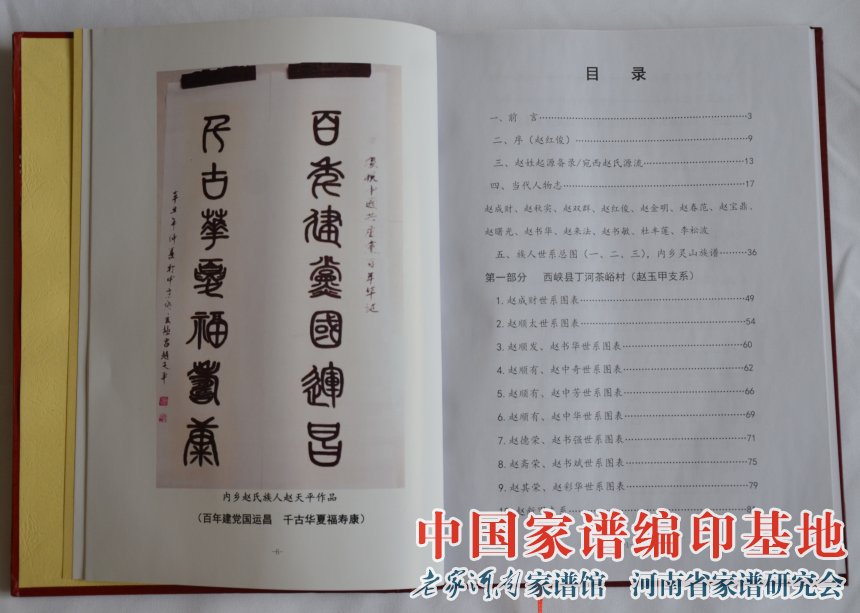 百年建党国运昌
千古华夏福寿康
内乡赵氏族人赵天平作品
（百年建党国运昌　千古华夏福寿康）
目　录
一、前　言……3
二、序（赵红俊）……9
三、赵姓起源备录/宛西赵氏源流……13
四、当代人物志……17
赵成财、赵秋实、赵双群、赵红俊、赵金明、赵春范、赵宝鼎、
赵曙光、赵书华、赵来法、赵书敏、杜丰莲、李松波
五、族人世系总图（一、二、三），内乡灵山族谱……36
第一部分　西峡县丁河茶峪村（赵玉甲支系）
1. 赵成财世系图表……49
2. 赵顺太世系图表……54
3. 赵顺发、赵书华世系图表……60
4. 赵顺有、赵中奇世系图表……62
5. 赵顺有、赵中芳世系图表……66
6. 赵顺有、赵中华世系图表……69
7. 赵德荣、赵书强世系图表……71
8. 赵斋荣、赵书斌世系图表……75
9. 赵其荣、赵彩华世系图表……79
中国家谱编印基地
老家河南家谱馆　河南省家谱研究会